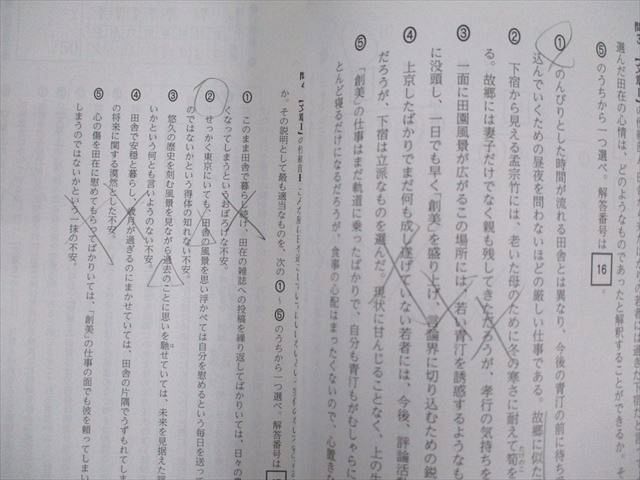 選んだ田在の心情は、どのようなものであったと解釈することができるか。そ
⑤のうちから一つ選べ。解答番号は 16 。
① のんびりとした時間が流れる田舎とは異なり、今後の青汀の前に待ち
込んでいくための昼夜を問わないほどの厳しい仕事である。故郷に似た
② 下宿から見える孟宗竹には、老いた母のために冬の寒さに耐えて筍を
る。故郷には妻子だけでなく親も残してきただろうが、孝行の気持ちを
③ 一面に田園風景が広がるこの場所には、若い青汀を誘惑するようなも
に没頭し、一日でも早く「創美」を盛り上げ、言論界に切り込むための鋭
④ 上京したばかりでまだ何も成し遂げていない若者には、今後、評論活
だろうが、下宿は立派なものを選んだ。現状に甘んじることなく、上の生
⑤ 「創美」の仕事はまだ軌道に乗ったばかりで、自分も青汀もがむしゃらに
とんど寝るだけになるだろうが、食事の心配はまったくないので、心置きな
問4 【文章Ⅰ】の
か。その説明として最も適当なものを、次の①～⑤のうちから一つ選べ。解答番号
① このまま田舎で暮らし続け、田在の雑誌への投稿を繰り返してばかりいては、日々の
くなってしまうというおぼろげな不安。
② せっかく東京にいても、田舎の風景を思い浮かべては自分を慰めるという毎日を送っ
のではないかという得体の知れない不安。
③ 悠久の歴史を刻む風景を見ながら過去のことに思いを馳せていては、未来を見据えた評
いかという何とも言いようのない不安。
④ 田舎で安穏と暮らし、歳月が過ぎるのにまかせていては、田舎の片隅でうずもれてしま
の将来に関する漠然とした不安。
⑤ 心の傷を田在に慰めてもらってばかりいては、「創美」の仕事の面でも彼を頼ってしまい
しまうのではないかという一抹の不安。